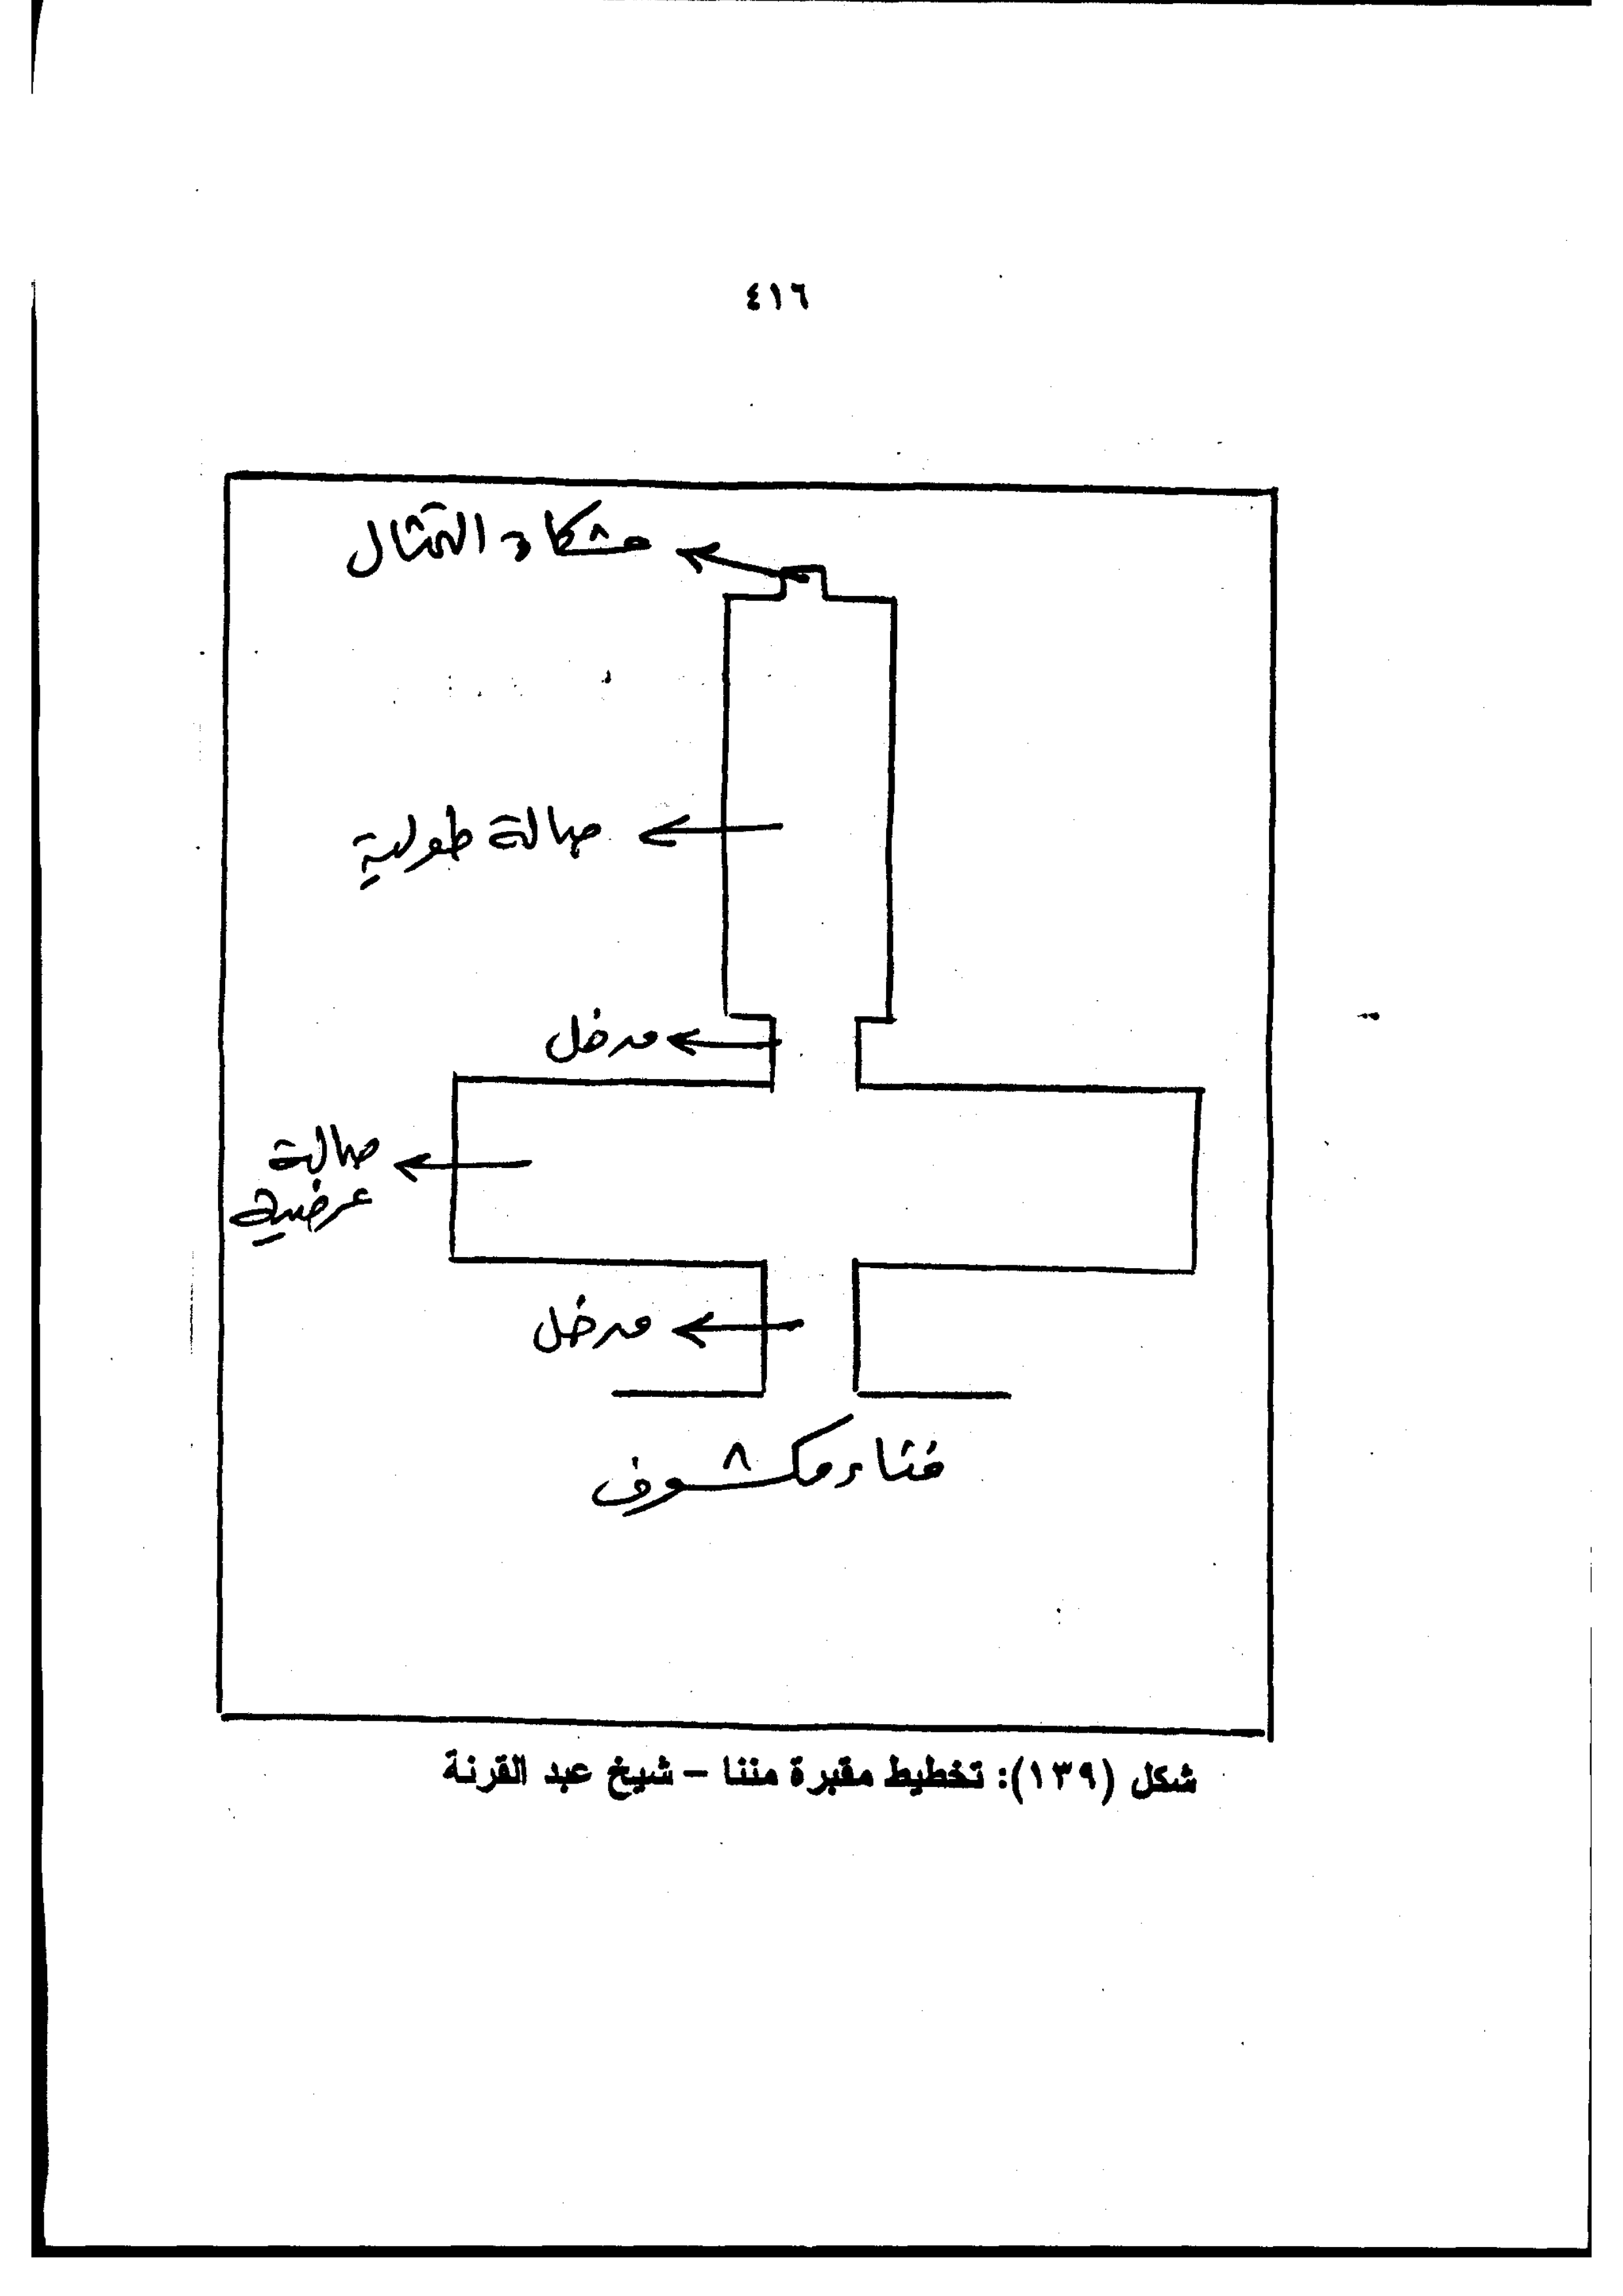 ٤١٦
مشكاة التمثال
صالة طولية
مدخل
صالة
عرضية
مدخل
فناء مكشوف
شكل (١٣٩): تخطيط مقبرة مننا – شيخ عبد القرنة